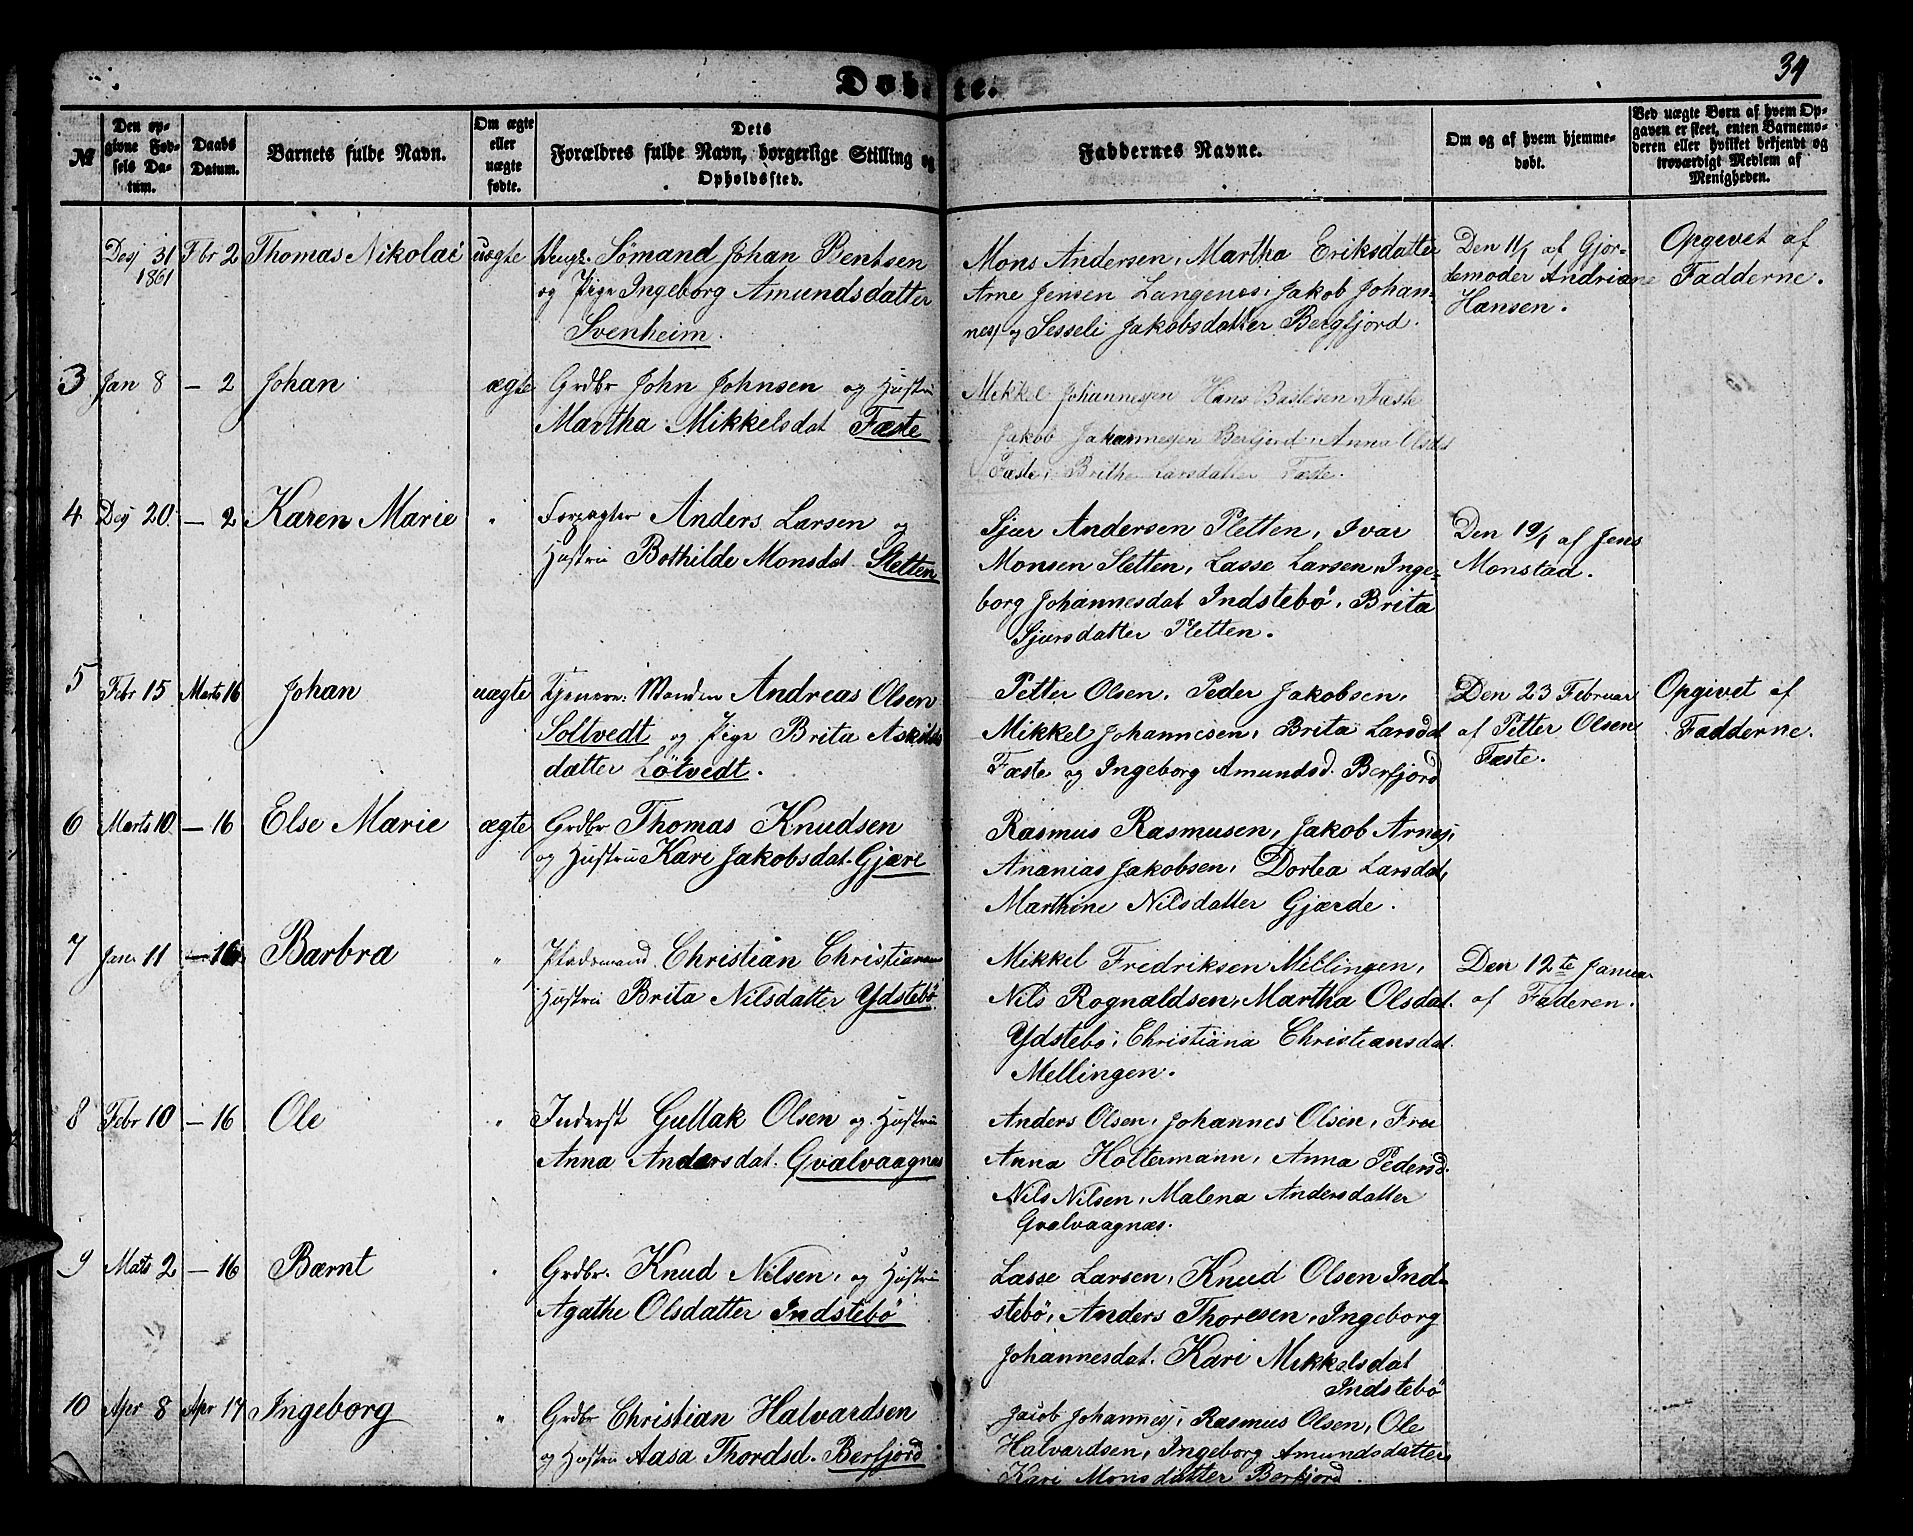 Døbte.
34
№
Den opgivne Fødsels Datum.
Daabs Datum.
Barnets fulde Navn.
Om ægte eller uægte fødte.
Dets Forældres fulde Navn, borgerlige Stilling og Opholdssted.
Faddernes Navne.
Om og af hvem hjemmedøbt.
Ved uægte Børn af hvem Opgaven er skeet, enten Barnemoderen eller hvilket bekjendt og troværdigt Medlem af Menigheden.
Desj 31 Fbr 2 Thomas Nikolai uægte Sømand Johan Bentsen
1861 og Pige Ingeborg Amundsdatter
Svenheim.
Mons Andersen, Martha Eriksdatter
Arne Jensen Langenes, Jakob Johan-
nesj og Sesseli Jakobsdatter Bergfjord.
Den 11/1 af Gjor-
demoder Andriane
Hansen.
Opgivet af
Fadderne.
3 Jan 8 — 2 Johan ægte Grdbr John Johnsen og Hustru
Martha Mikkelsdat Fæste
Mikkel Johannesjen Hans Bastesen Fæste
Jakob Johannesjen Berfjord. Anna Olsdt
Fæste, Brithe Larsdatter Fæste.
4 Desj 20. — 2 Karen Marie " Forpagter Anders Larsen og
Hustru Bothilde Monsdat. Sletten
Sjur Andersen Sletten, Ivar
Monsen Sletten, Lasse Larsen, Inge-
borg Johannesdat Indstebö, Brita
Sjursdatter Sletten.
Den 19/1 af Jens
Monstad.
5 Febr 15 Marts 16 Johan uægte Tjenere: Manden Andreas Olsen
Soltvedt og Pige Brita Askilds
datter Lötvedt.
Petter Olsen, Peder Jakobsen,
Mikkel Johannesen, Brita Larsdat
Fæste og Ingeborg Amundsd. Berfjord
Den 23 Februar
af Petter Olsen
Fæste.
Opgivet af
Fadderne.
6 Marts 10. — 16 Else Marie ægte Grdbr Thomas Knudsen
og Hustru Kari Jakobsdat. Gjære
Rasmus Rasmusen, Jakob Arnesj,
Ananias Jakobsen, Dortea Larsdat,
Marthine Nilsdatter Gjærde.
7 Janr 11 — 16 Barbra " Pladsmand Christian Christiansen
Hustru Brita Nilsdatter Ydstebö
Mikkel Fredriksen Mellingen,
Nils Rognaldsen, Martha Olsdat.
Ydstebö, Christiana Christiansdat.
Mellingen.
Den 12te Januar
af Faderen.
8 Febr 10 — 16 Ole " Inderst Gullak Olsen og Hustru
Anna Andersdat. Gvalvaagnæs
Anders Olsen, Johannes Olsen, Frue
Anna Holtermann, Anna Pedersd.
Nils Nilsen, Malena Andersdatter
Gvalvaagnæs.
9 Marts 2 — 16 Bærnt " Grdbr. Knud Nilsen, og Hustru
Agathe Olsdatter Indstebö
Lasse Larsen, Knud Olsen Ind-
stebö, Anders Thoresen, Ingeborg
Johannesdat. Kari Mikkelsdat
Indstebö
10 Apr 8 Apr 17 Ingeborg " Grdbr Christian Halvardsen
og Hustru Aasa Thordsd. Berfjord
Jacob Johannesj, Rasmus Olsen, Ole
Halvardsen, Ingeborg Amundsdatter
Kari Monsdatter Berfjord.